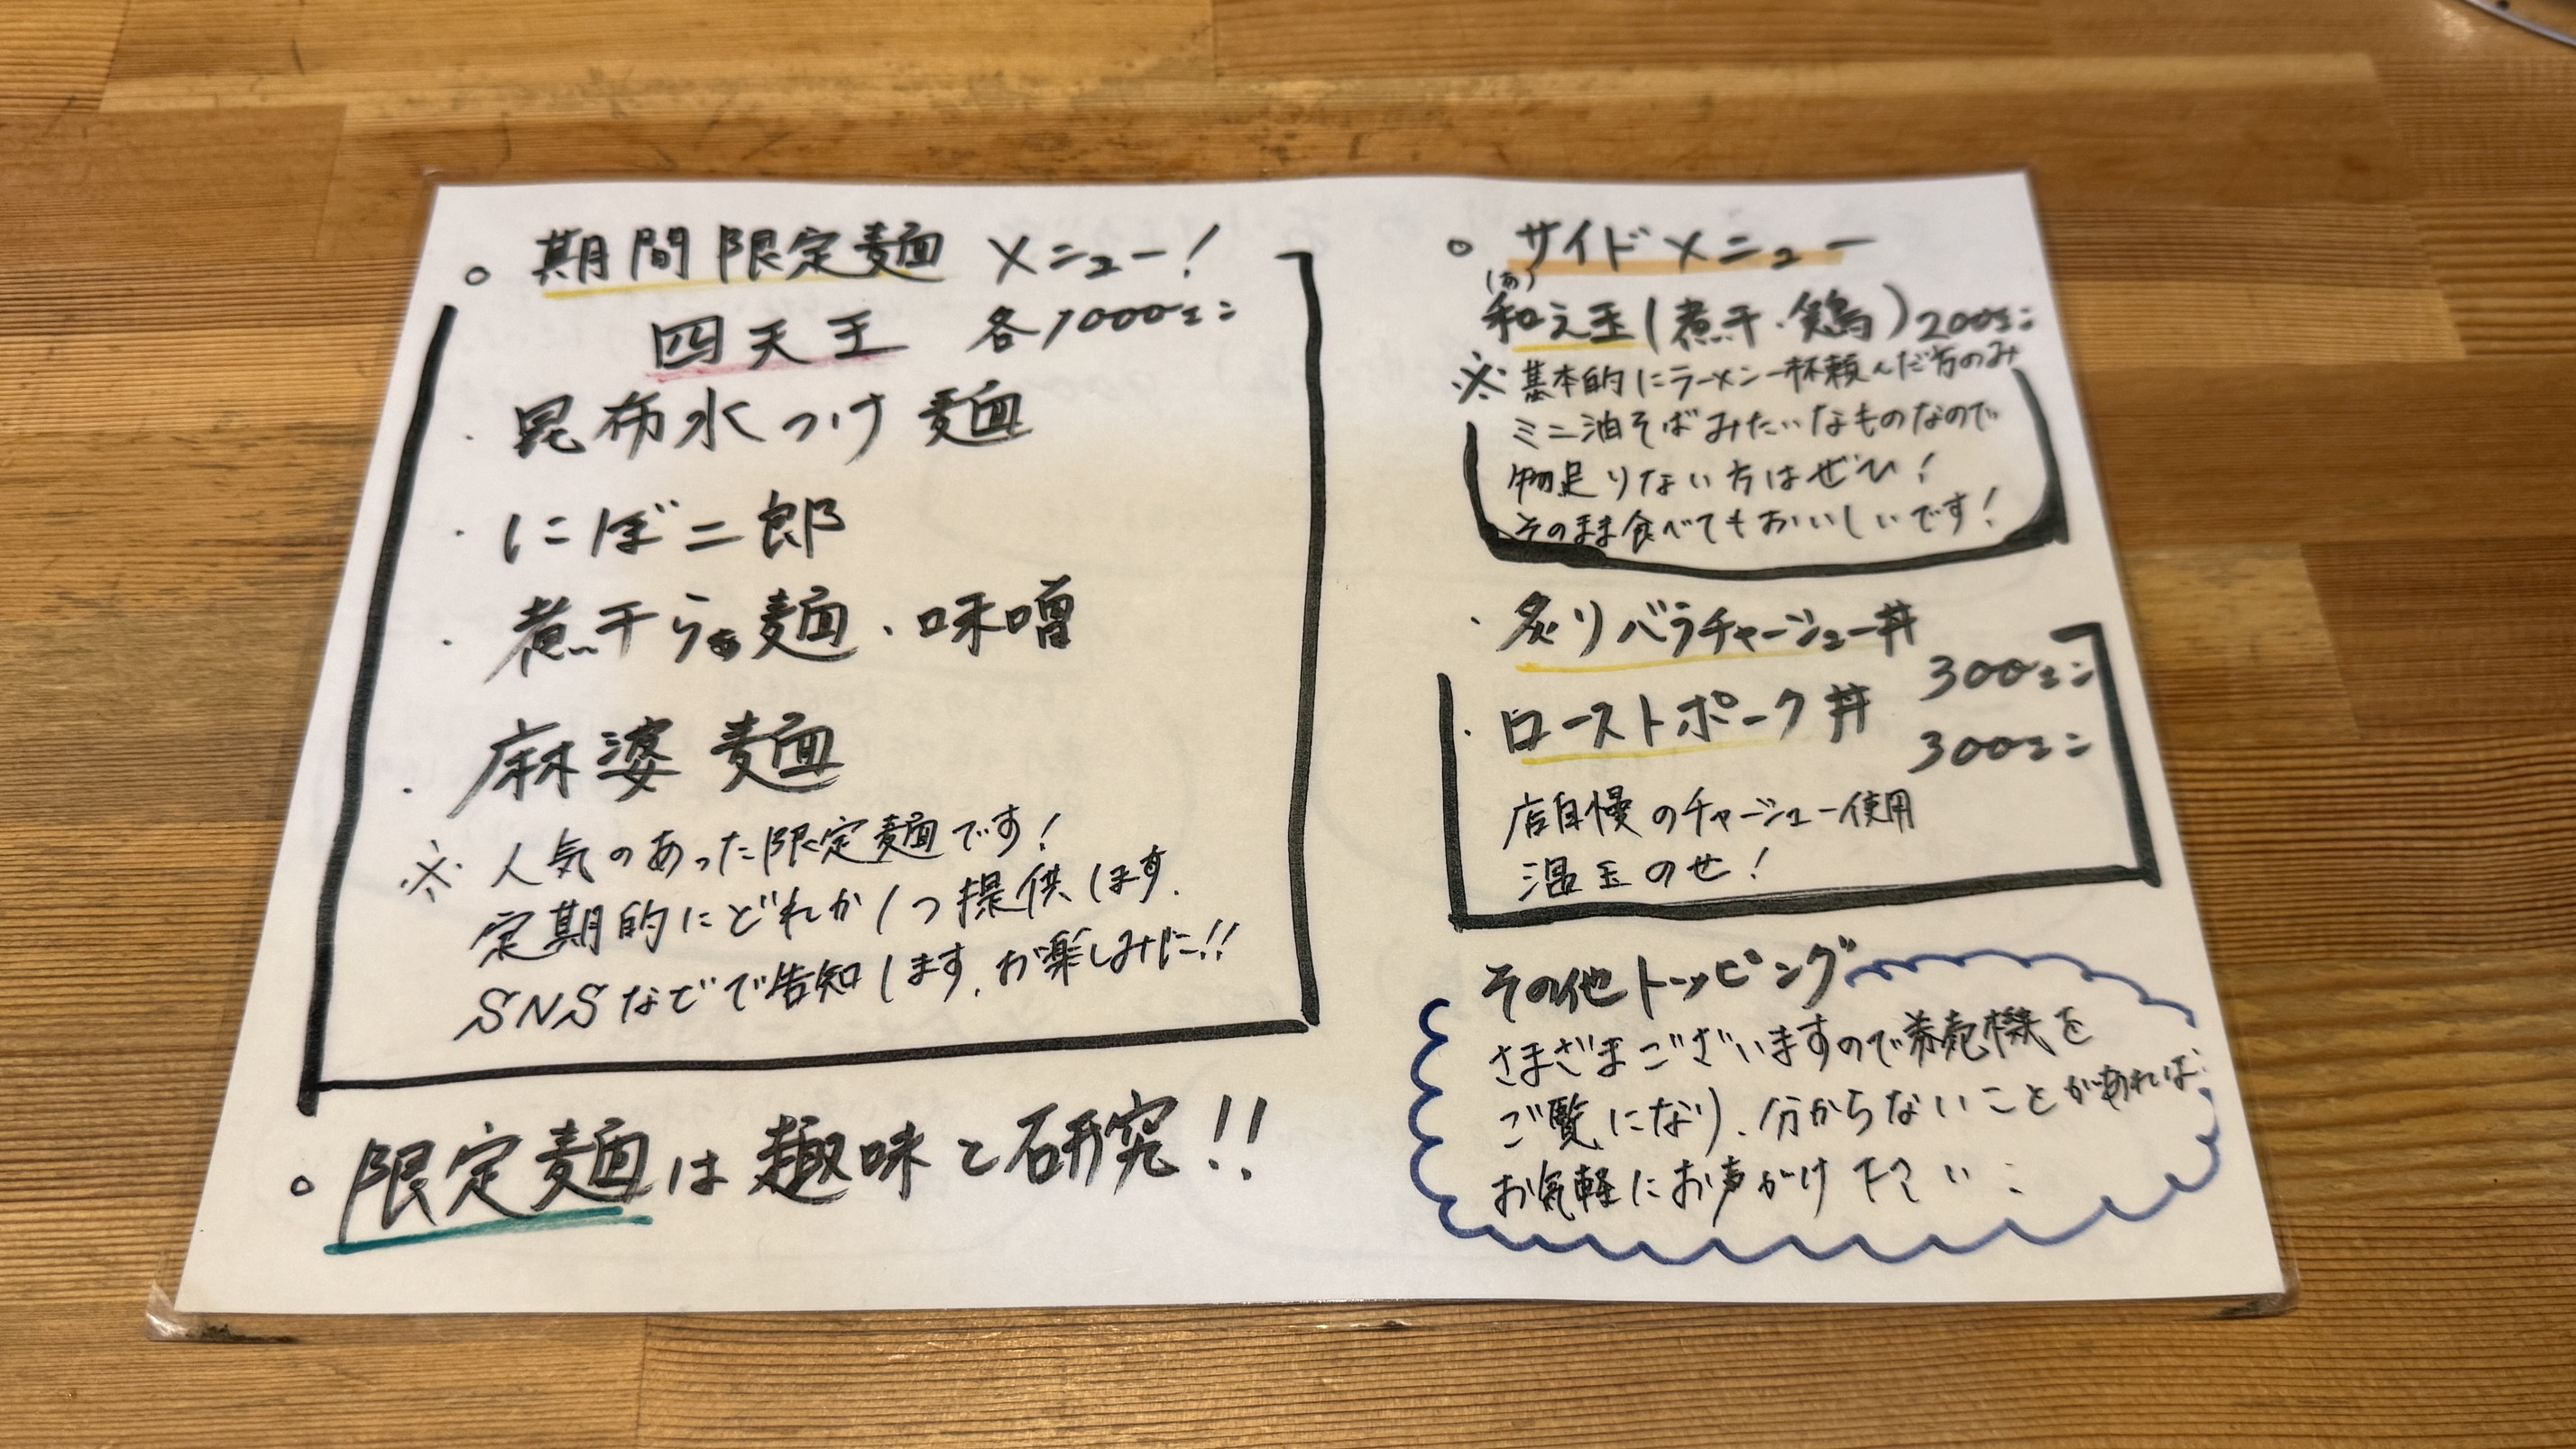 。期間限定麺 メニュー!
四天王 各1000エン
・昆布水つけ麺
・にぼ二郎
・煮干らぁ麺・味噌
・麻婆麺
※人気のあった限定麺です!
定期的にどれか1つ提供します.
SNSなどで告知します.お楽しみに!!
。限定麺は趣味と研究!!
。サイドメニュー
(あ)
和え玉(煮干・鶏)200エン
※基本的にラーメン一杯頼んだ方のみ
ミニ油そばみたいなものなので
物足りない方はぜひ!
そのまま食べてもおいしいです!
・炙りバラチャーシュー丼
300エン
・ローストポーク丼
300エン
店自慢のチャーシュー使用
温玉のせ!
その他トッピング
さまざまございますので券売機を
ご覧になり、分からないことがあれば
お気軽にお声がけ下さい: